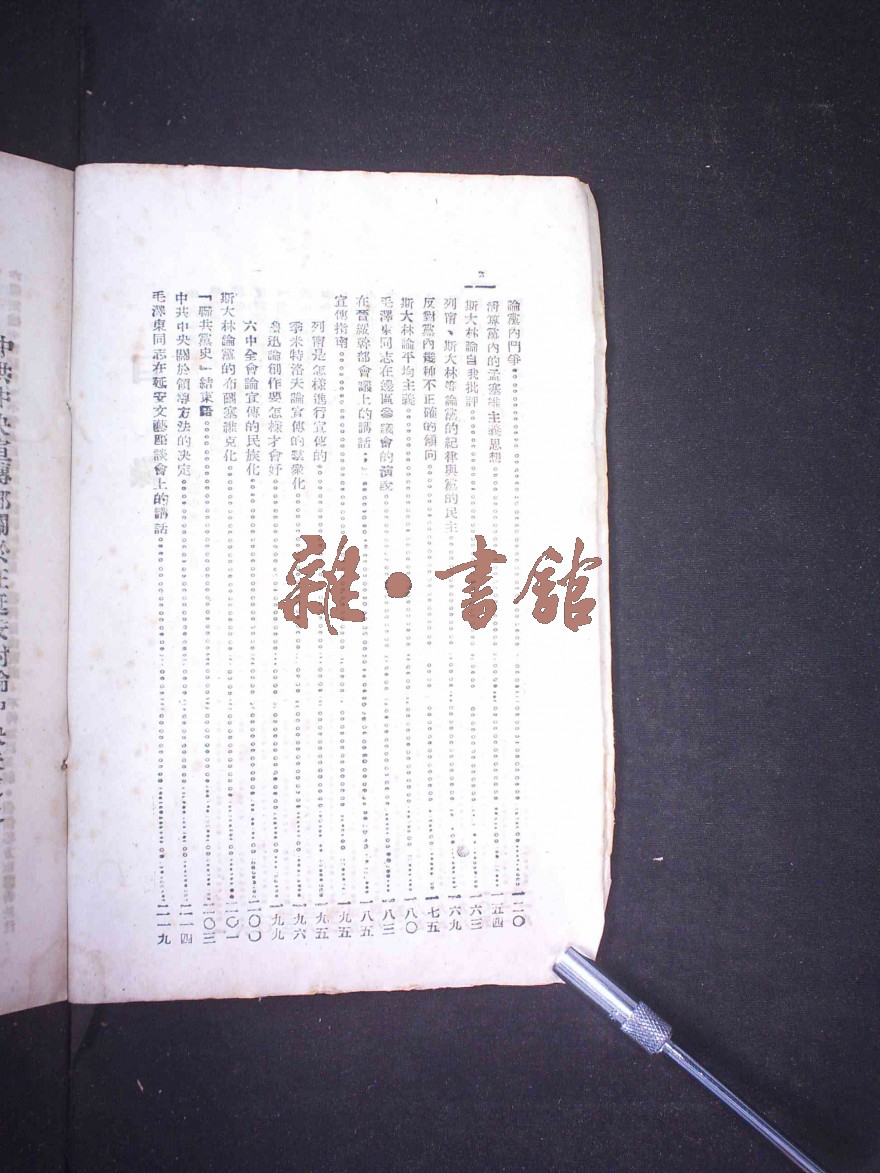 2
論黨內鬥爭 一二〇
清算黨內的孟塞維主義思想 一五四
斯大林論自我批評 一六三
列甯、斯大林等論黨的紀律與黨的民主 一六九
反對黨內幾种不正確的傾向 一七五
斯大林論平均主義 一八〇
毛澤東同志在邊區參議會的演說 一八三
在晉綏幹部會議上的講話 一八五
宣傳指南 一九五
列甯是怎樣進行宣傳的 一九五
季米特洛夫論宣傳的羣衆化 一九六
魯迅論創作要怎樣才會好 一九九
六中全會論宣傳的民族化 二〇〇
斯大林論黨的布爾塞維克化 二〇一
「聯共黨史」結束語 二〇三
中共中央關於領導方法的决定 二一四
毛澤東同志在延安文藝座談會上的講話 二一九
雜·書館